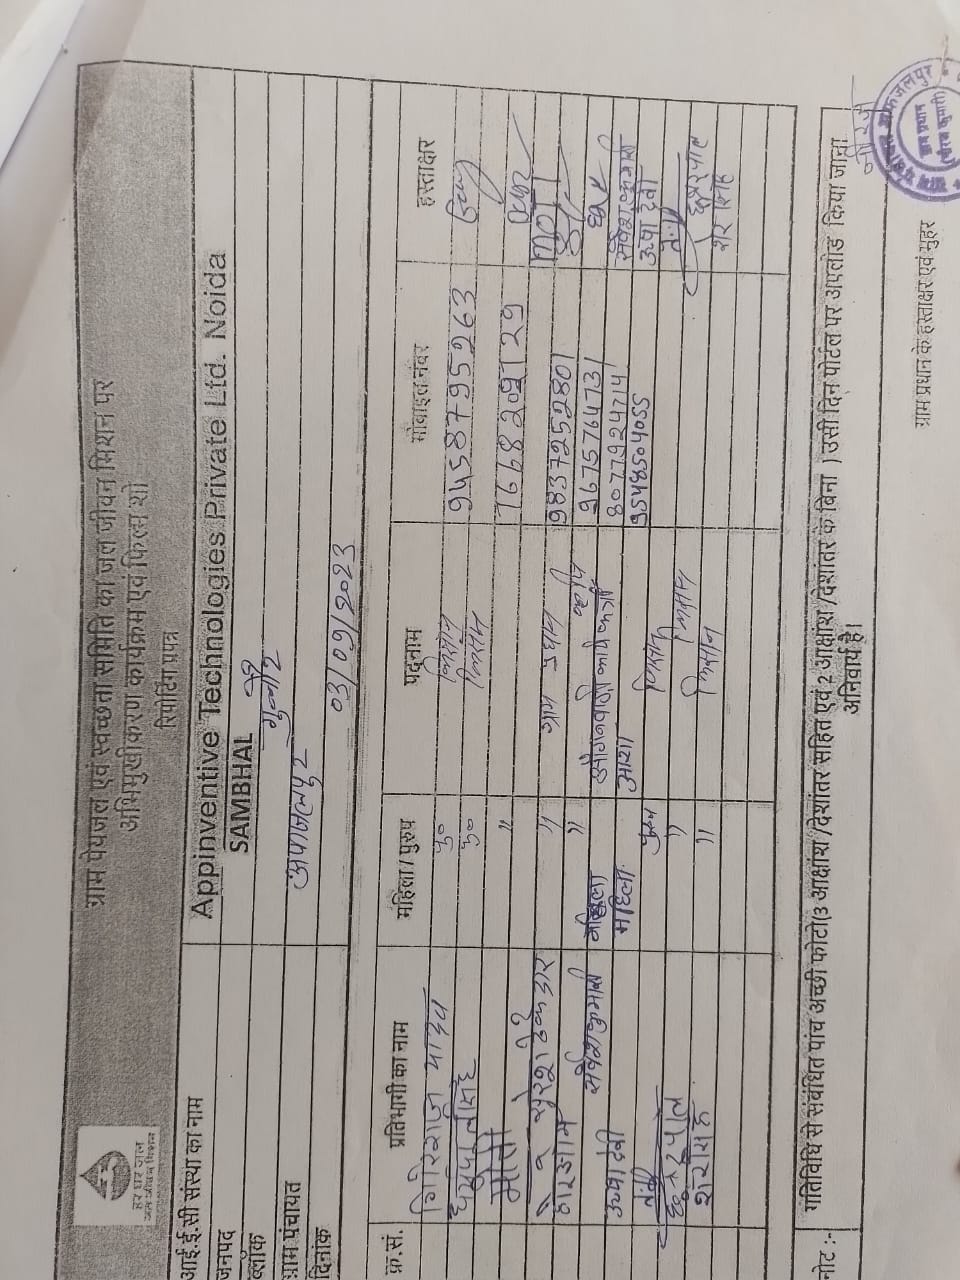 हर घर जल
जल जीवन मिशन
ग्राम पेयजल एवं स्वच्छता समिति का जल जीवन मिशन पर
अभिमुखीकरण कार्यक्रम एवं फिल्म शो
रिपोर्टिंग प्रपत्र
आई.ई.सी संस्था का नाम Appinventive Technologies Private Ltd. Noida
जनपद SAMBHAL
ब्लॉक गुन्नौर
ग्राम पंचायत अफजलपुर
दिनांक 03/09/2023
क्र.सं. प्रतिभागी का नाम महिला / पुरुष पदनाम मोबाइल नंबर हस्ताक्षर
यादव पु० किसान 9458795263
पु० किसान 7668209129
मोती "
" ग्राम प्रधान 9837252801
सर्वेशकुमारी " 9675764731
महिला आंगनवाड़ी कार्यकत्री 8077924714 सर्वेशकुमारी
ऊषा देवी महिला आशा 9548504055 ऊषा देवी
पुरुष किसान
" किसान
" किसान
नोट :- गतिविधि से संबंधित पांच अच्छी फोटो(3 आक्षांश /देशांतर सहित एवं 2 आक्षांश /देशांतर के बिना ) उसी दिन पोर्टल पर अपलोड किया जाना
अनिवार्य है।
ग्राम प्रधान के हस्ताक्षर एवं मुहर